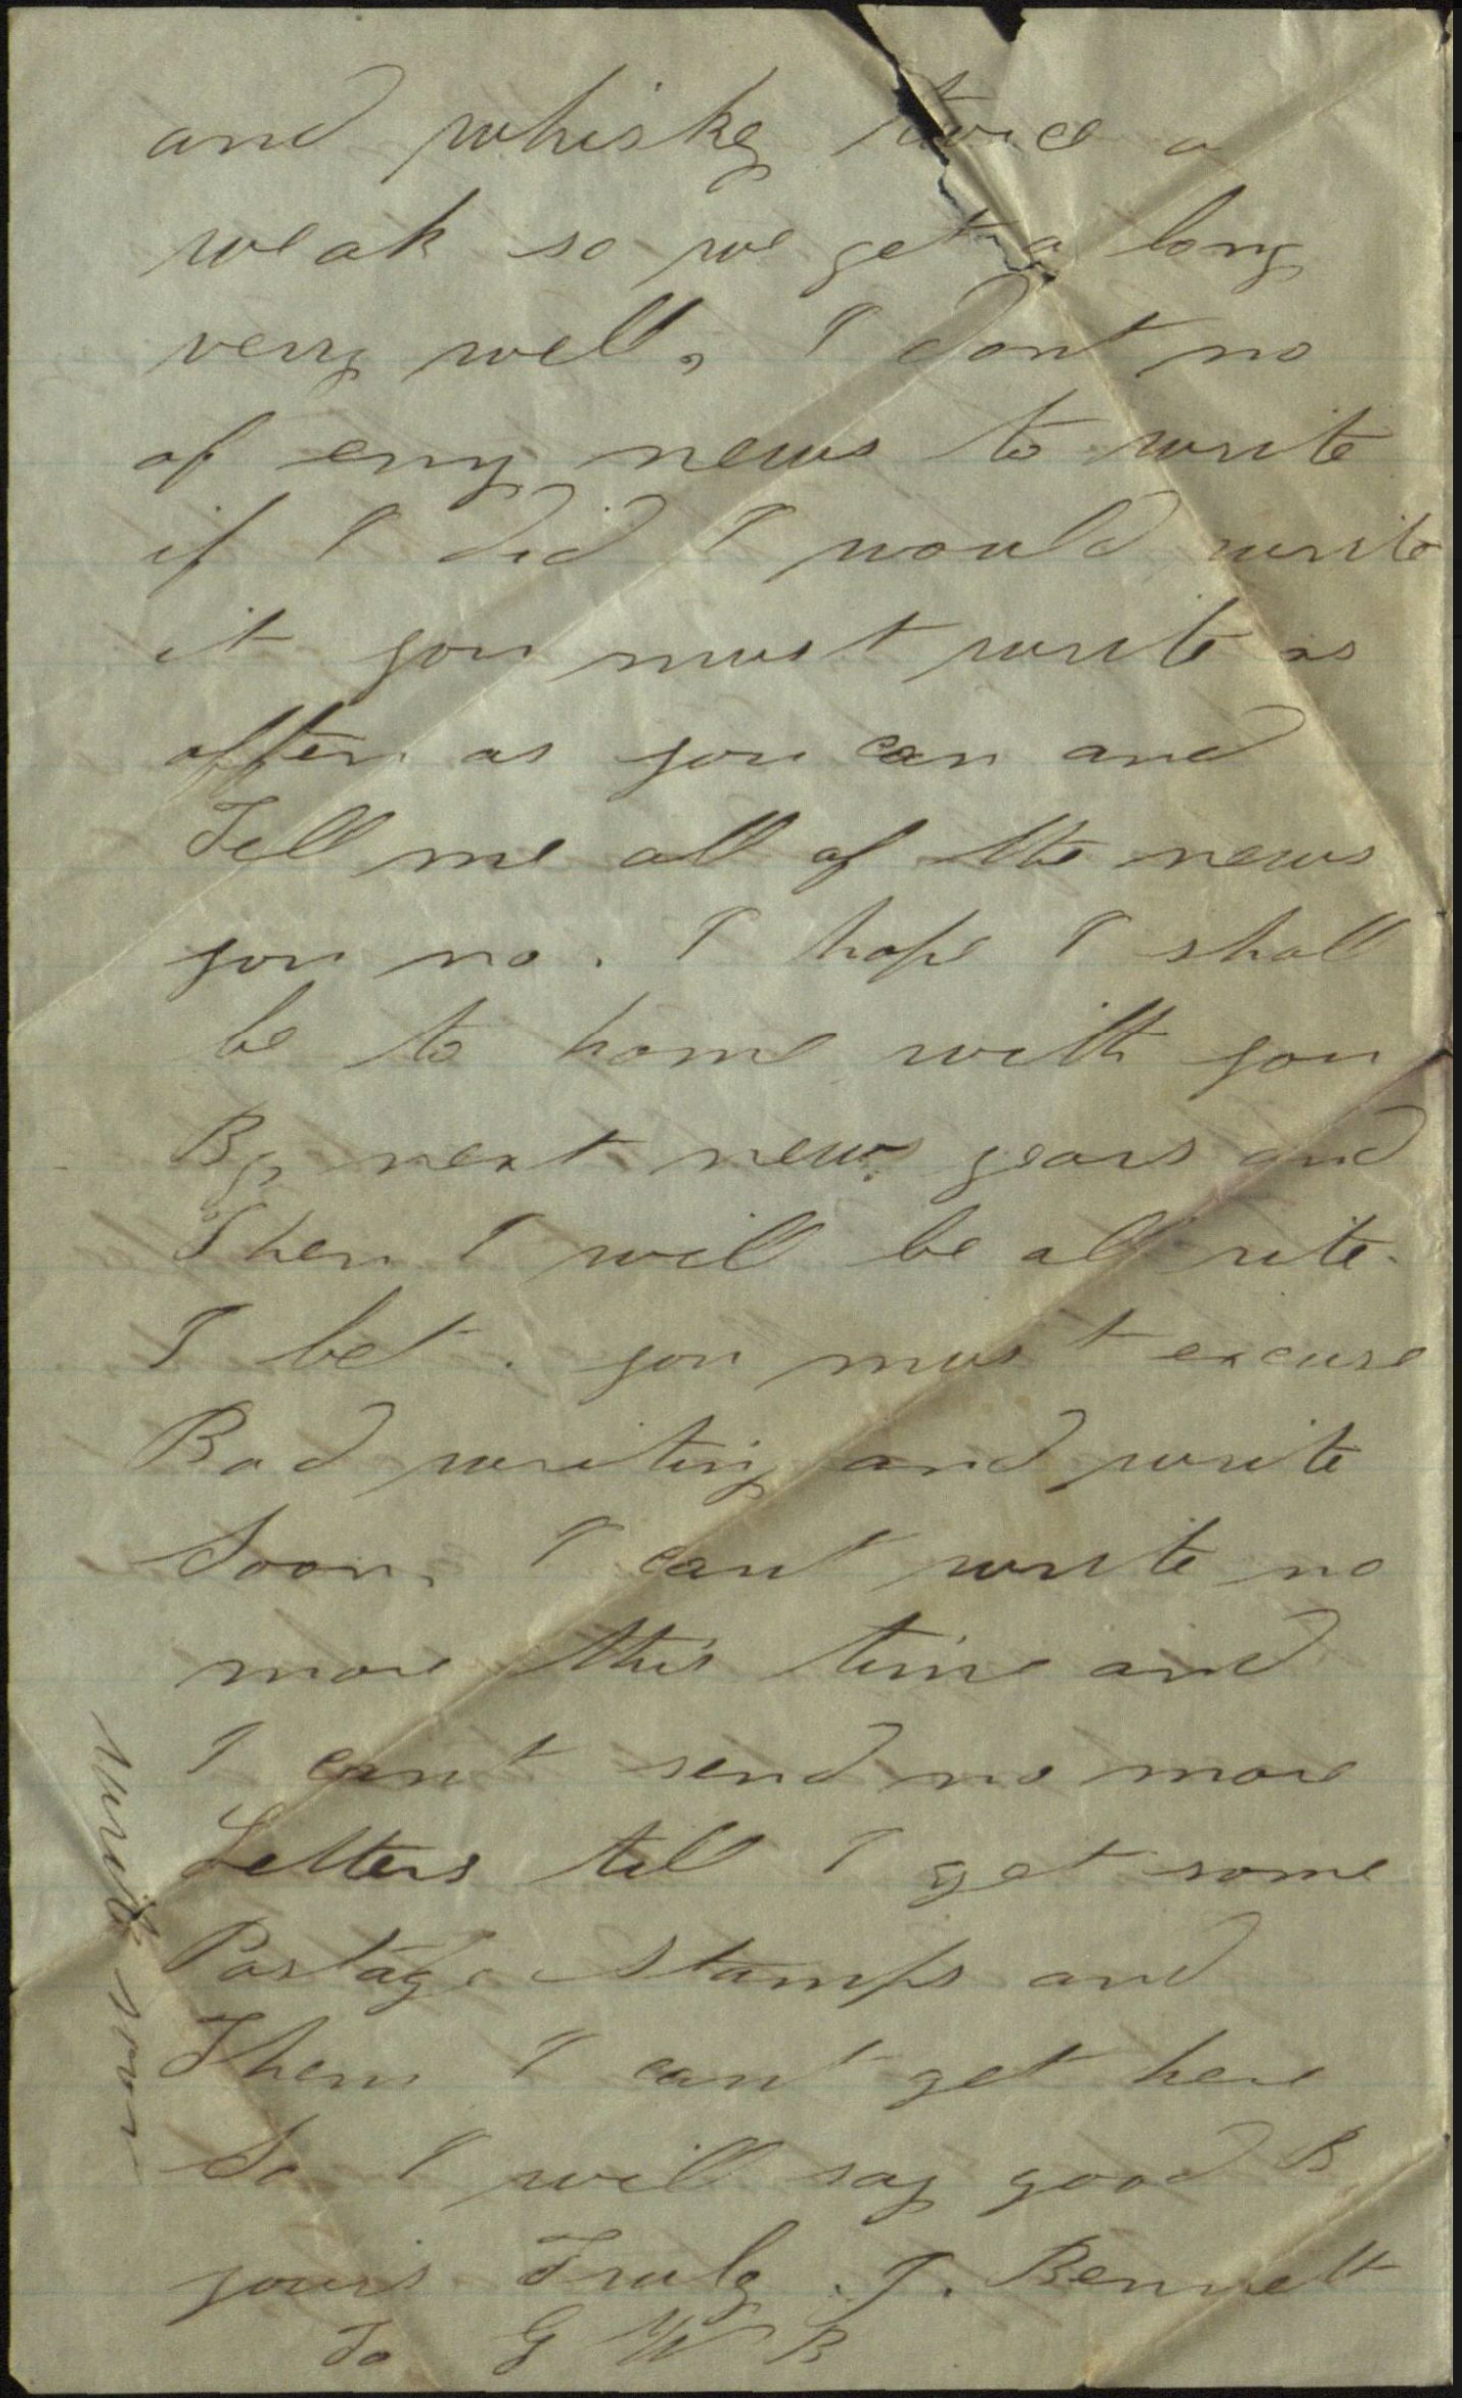 and whiskey twice a
weak so we get a long
very well, I dont no
of eny news to write
if I did I would write
it you must write as
often as you can and
Tell me all of the news
you no. I hope I shall
be to home with you
By next new years and
Then I will be all rite.
I bet. you must excuse
Bad writing and write
Soon, I cant write no
more this time and
I cant send no more
Letters till I get some
Postage stamps and
Them I cant get here
So I will say good B
yours Truly. T. Bennett
To G W B
Write soon